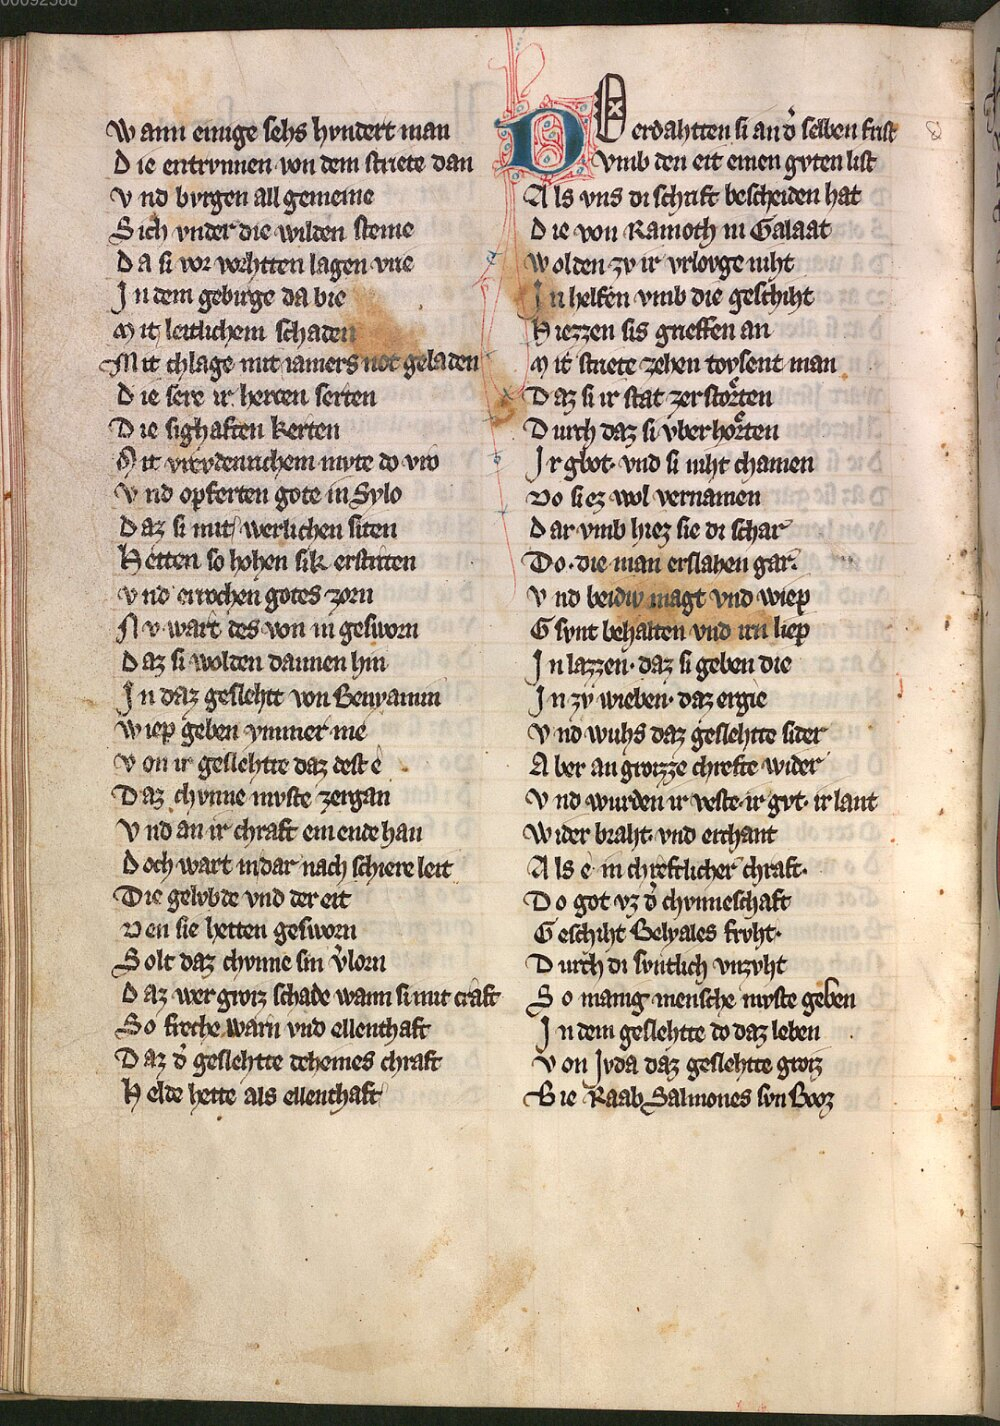 00092588
Wann einige sehs hvndert man
Die entrvnnen von dem striete dan
Vnd bvrgen all gemeine
Sich vnder die wilden steine
Da si vor vorhtten lagen vne
In dem gebirge da bie
Mit leitlichem schaden
Mit chlage mit iamers not geladen
Die sere ir hercen serten
Die sighaften kerten
Mit vrevdenrichem mvte do vro
Vnd opferten gote in Sylo
Daz si mit werlichen siten
Hetten so hohen sik erstriten
Vnd errochen gotes zorn
Nv wart des von in gesworn
Daz si wolden dannen hin
In daz geslehtt von Benyamin
Wiep geben ymmer me
Von ir geslehtte daz dest e
Daz chvnne mvste zergan
Vnd an ir chraft ein ende han
Doch wart in dar nach schiere leit
Die gelvbde vnd der eit
Den sie hetten gesworn
Solt daz chvnne sin v̓lorn
Daz wer groiz schade wann si mit craft
So freche warn vnd ellenthaft
Daz d̓ geslehtte deheines chraft
Helde hette als ellenthaft
DO erdahtten si an d̓ selben frist
Vmb den eit einen gvten list
Als vns di schrift bescheiden hat
Die von Ramoth in Galaat
Wolden zv ir vrlovge niht
In helfen vmb die geschiht
Hiezzen sis grieffen an
Mit striete zehen tovsent man
Daz si ir stat zerstoͤrten
Durch daz si vberhoͤrten
Ir gbot· vnd si niht chamen
Do si ez wol vernamen
Dar vmb hiez sie di schar
Do· die man erslahen gar·
Vnd beidiv magt vnd wiep
Gsvnt behalten vnd irn liep
In lazzen· daz si geben die
In zv wieben· daz ergie
Vnd wuhs daz geslehtte sider
Aber an groizze chrefte wider
Vnd wurden ir veste· ir gvt· ir lant
Wider braht· vnd erchant
Als e· in chreftlicher chraft·
Do got vz d̓ chvnneschaft
Geschiht Belyales frvht·
Durch di svntlich vnzvht
So manig mensche mvste geben
In dem geslehtte do daz leben
Von Jvda daz geslehtte groiz
Bie Raab Salmones svn Booz